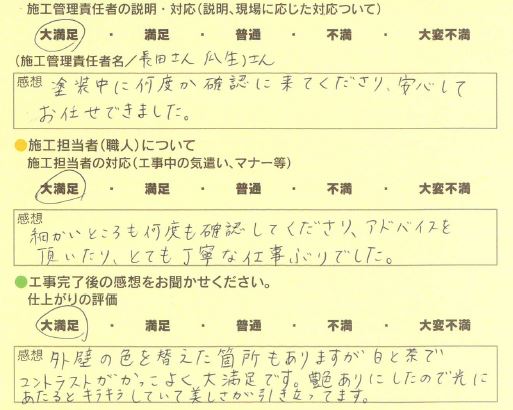 施工管理責任者の説明・対応(説明、現場に応じた対応ついて)
大満足 ・ 満足 ・ 普通 ・ 不満 ・ 大変不満
(施工管理責任者名/長田さん 瓜生さん
感想 塗装中に何度か確認に来てくださり、安心して
お任せできました。
●施工担当者(職人)について
施工担当者の対応(工事中の気遣い、マナー等)
大満足 ・ 満足 ・ 普通 ・ 不満 ・ 大変不満
感想
細かいところも何度も確認してくださり、アドバイスを
頂いたり、とても丁寧な仕事ぶりでした。
●工事完了後の感想をお聞かせください。
仕上がりの評価
大満足 ・ 満足 ・ 普通 ・ 不満 ・ 大変不満
感想 外壁の色を替えた箇所もありますが白と茶で
コントラストがかっこよく大満足です。艶ありにしたので光に
あたるとキラキラしていて美しさが引き立ってます。